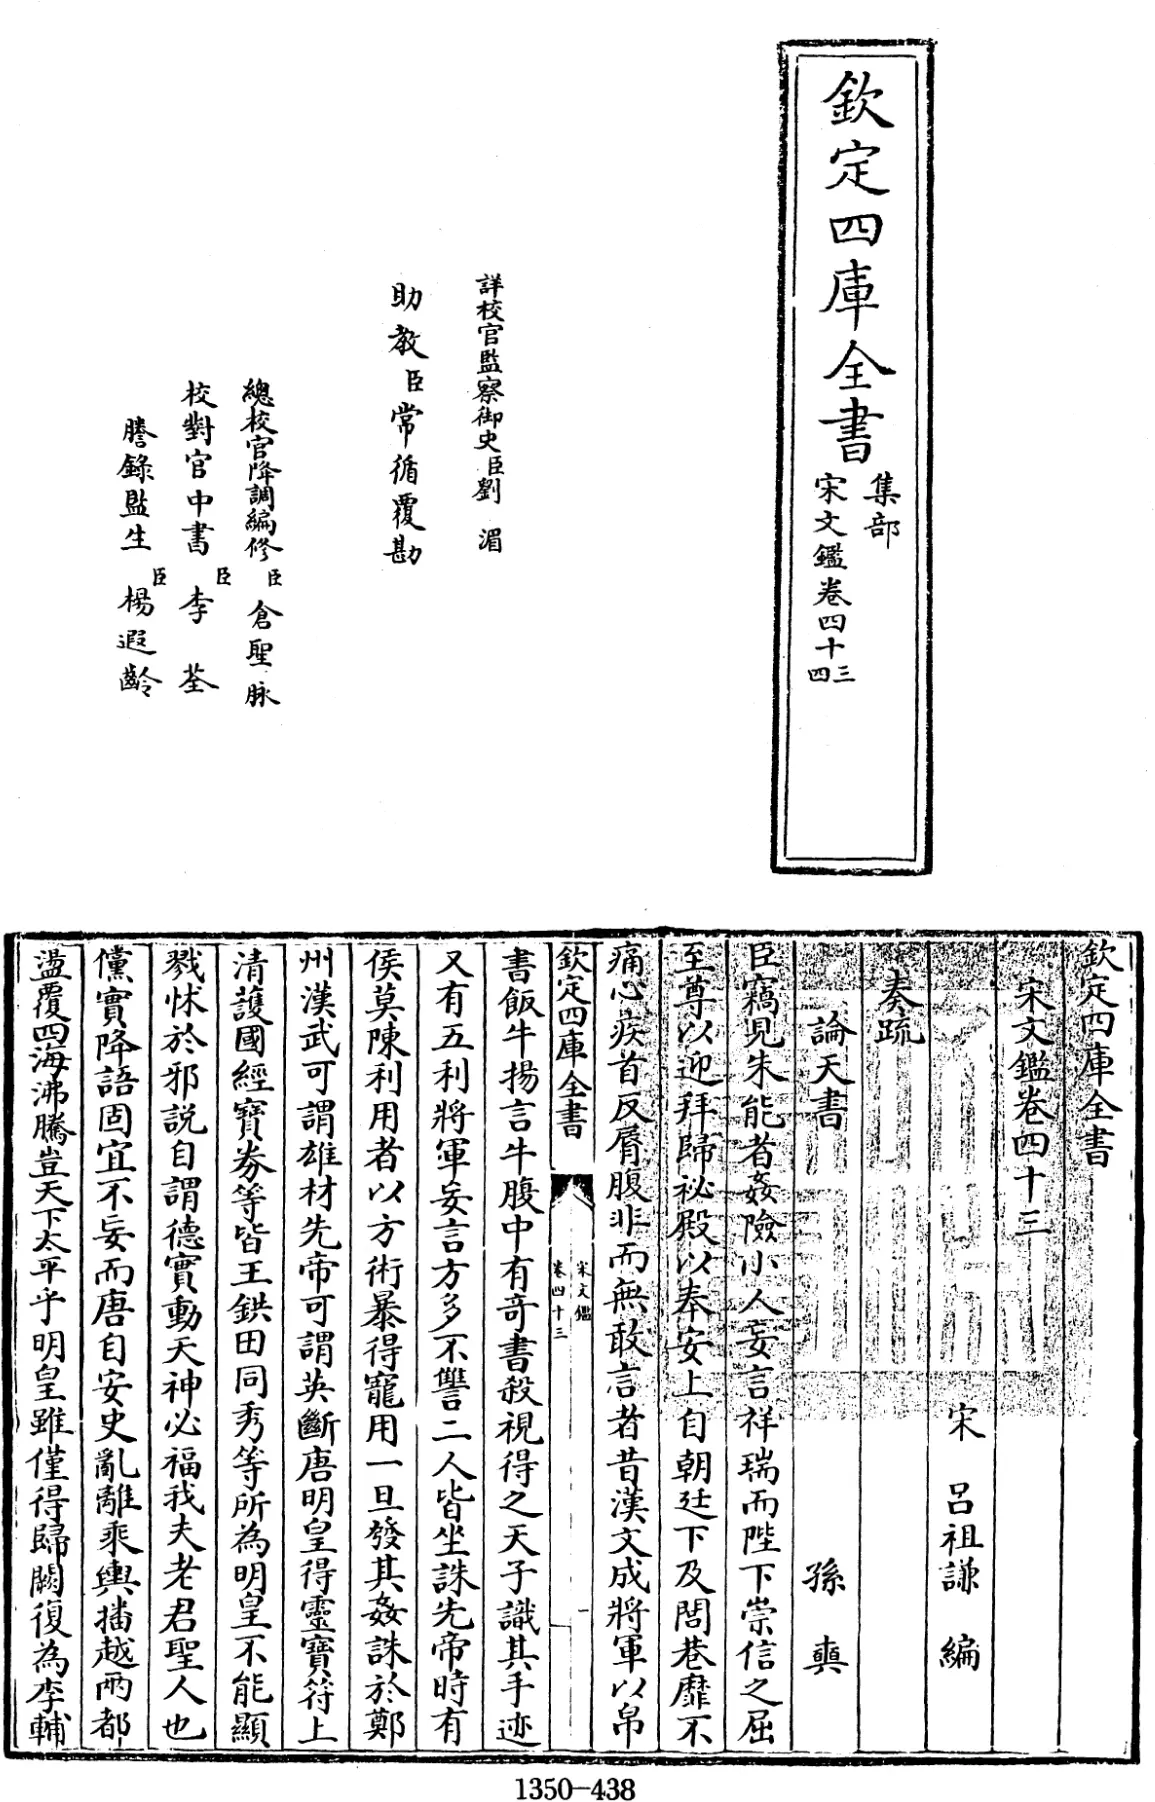 欽定四庫全書
集部
宋文鑑卷四十三
四
詳校官監察御史臣劉湄
助教臣常循覆勘
總校官降調編修臣倉聖脉
校對官中書臣李荃
謄錄監生臣楊遐齡
欽定四庫全書
宋文鑑卷四十三
宋 呂祖謙 編
奏疏
論天書 孫奭
臣竊見朱能者姦險小人妄言祥瑞而陛下崇信之屈
至尊以迎拜歸祕殿以奉安上自朝廷下及閭巷靡不
痛心疾首反脣腹非而無敢言者昔漢文成將軍以帛
欽定四庫全書
宋文鑑
卷四十三
一
書飯牛揚言牛腹中有奇書殺視得之天子識其手迹
又有五利將軍妄言方多不讐二人皆坐誅先帝時有
侯莫陳利用者以方術暴得寵用一旦發其姦誅於鄭
州漢武可謂雄材先帝可謂英斷唐明皇得靈寶符上
清護國經寶券等皆王鉷田同秀等所為明皇不能顯
戮怵於邪說自謂德實動天神必福我夫老君聖人也
儻實降語固宜不妄而唐自安史亂離乘輿播越兩都
盪覆四海沸騰豈天下太平乎明皇雖僅得歸闕復為李輔
1350-438